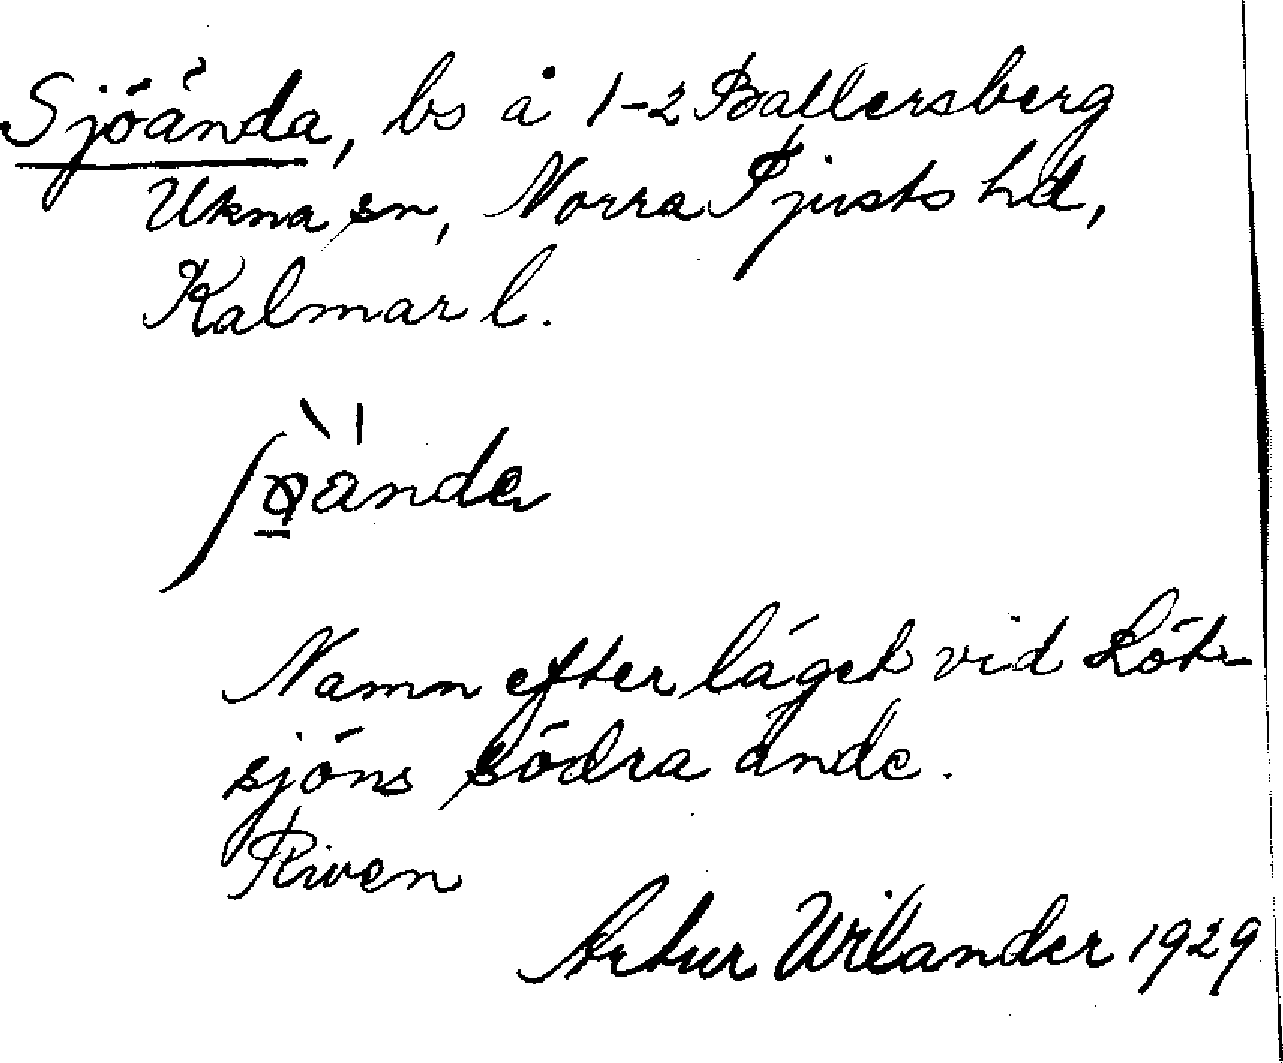 Sjöända, bs å 1-2 Ballersberg
Ukna sn, Norra Tjusts hd,
Kalmar l.
ända
Namn efter läget vid Löt-
sjöns södra ände.
Riven
Artur Wilander 1929